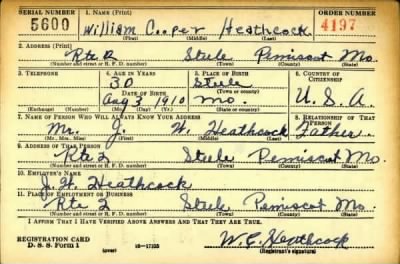 SERIAL NUMBER 1. NAME (Print) ORDER NUMBER
5600 William Cooper Heathcock 4197
(First) (Middle) (Last)
2. ADDRESS (Print)
Rte 2 Steele Pemiscot Mo.
(Number and street or R. F. D. number) (Town) (County) (State)
3. TELEPHONE 4. AGE IN YEARS 5. PLACE OF BIRTH 6. COUNTRY OF CITIZENSHIP
30 Steele
DATE OF BIRTH (Town or county)
Aug 3, 1910 Mo. U. S. A.
(Exchange) (Number) (Mo.) (Day) (Yr.) (State or country)
7. NAME OF PERSON WHO WILL ALWAYS KNOW YOUR ADDRESS 8. RELATIONSHIP OF THAT PERSON
Mr. J. W. Heathcock Father
(Mr., Mrs., Miss) (First) (Middle) (Last)
9. ADDRESS OF THAT PERSON
Rte 2 Steele Pemiscot Mo.
(Number and street or R. F. D. number) (Town) (County) (State)
10. EMPLOYER'S NAME
J. W. Heathcock
11. PLACE OF EMPLOYMENT OR BUSINESS
Rte 2 Steele Pemiscot Mo.
(Number and street or R. F. D. number) (Town) (County) (State)
I AFFIRM THAT I HAVE VERIFIED ABOVE ANSWERS AND THAT THEY ARE TRUE.
REGISTRATION CARD W. C. Heathcock
D. S. S. Form 1 (over) 16—17105 (Registrant's signature)